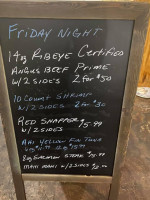 FRIDAY NIGHT
14oz RIBEYE CERTIFIED
ANGUS BEEF PRIME
W/2 SIDES 2 for $50
10 COUNT SHRIMP
W/2 SIDES 2 for $30
RED SNAPPER
W/2 SIDES $15.99
AHI YELLOW FIN TUNA
8oz SALMON STEAK
MAHI MAHI W/2 SIDES